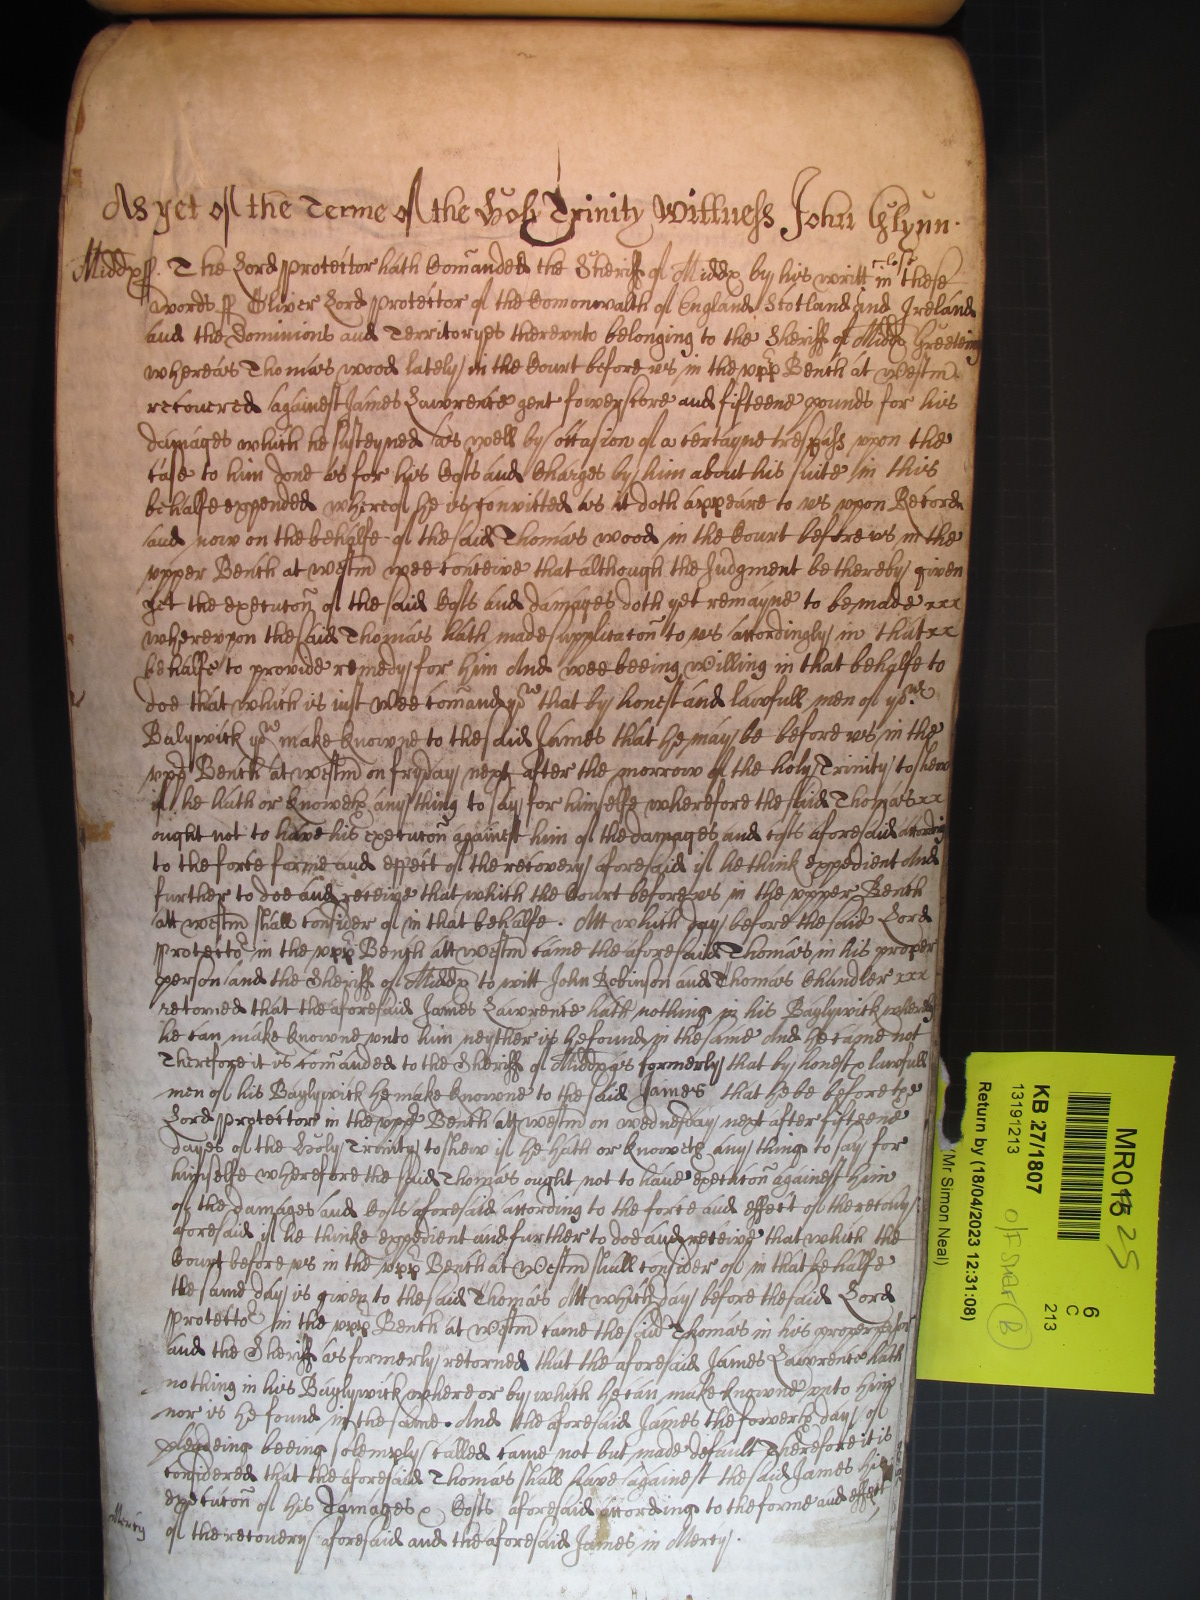 As yet of the Terme of the Holy Trinity Wittness John Glynn.
Middx ss. The Lord Protector hath Comanded the Sheriff of Middx by his writt close in these
words ss Oliver Lord Protector of the Comonwealth of England Scotland and Ireland
and the Dominions and Territoryes therevnto belonging to the Sheriff of Middx Greeting
whereas Thomas wood lately in the Court before vs in the vpp Bench at westm
recouered against James Lawrence gent fowerscore and fifteene pounds for his
damages which he susteyned as well by occasion of a certayne trespass vpon the
case to him done as for his Costs and Charges by him about his suite in this
behalfe expended whereof he is convicted as it doth appeare to vs vpon Record
and now on the behalfe of the said Thomas wood in the Court before vs in the
vpper Bench at westm wee conceive that although the Judgment be thereby given
yet the execucon of the said Costs and damages doth yet remayne to be made xxx
wherevpon the said Thomas hath made applicacon to vs accordingly in that xx
behalfe to provide remedy for him And wee beeing willing in that behalfe to
doe that which is iust Wee comand yow that by honest and lawfull men of yor
Balywick yow make knowne to the said James that he may be before vs in the
vpp Bench at westm on fryday next after the morrow of the holy Trinity to shew
if he hath or knoweth any thing to say for himselfe wherefore the said Thomas xx
ought not to have his execucon against him of the damages and costs aforesaid according
to the force forme and effect of the recovery aforesaid if he think expedient And
further to doe and receive that which the Court before vs in the vpper Bench
att westm shall consider of in that behalfe. Att which day before the said Lord
Protector in the vpp Bench att westm came the aforesaid Thomas in his proper
person and the Sheriff of Middx to witt John Robinson and Thomas Chandler xxx
retorned that the aforesaid James Lawrence hath nothing in his Baylywick whereby
he can make knowne vnto him neyther is he found in the same And he came not
Therefore it is comanded to the Sheriff of Middx as formerly that by honest & lawfull
men of his Baylywick he make knowne to the said James that he be before the
Lord Protector in the vpp Bench att westm on wednesday next after fifteene
dayes of the Holy Trinity to shew if he hath or knoweth any thing to say for
himselfe wherefore the said Thomas ought not to have execucon against him
of the damages and Costs aforesaid according to the force and effect of the recovery
aforesaid if he thinke expedient and further to doe and receive that which the
Court before vs in the vpp Bench at westm shall consider of in that behalfe
the same day is given to the said Thomas Att which day before the said Lord
Protector in the vpp Bench at westm came the said Thomas in his proper person
and the Sheriff as formerly retorned that the aforesaid James Lawrence hath
nothing in his Baylywick where or by which he can make knowne vnto him
nor is he found in the same. And the aforesaid James the fowerth day of
pleadeing beeing solemply called came not but made default Therefore it is
considered that the aforesaid Thomas shall have against the said James his
execucon of his Damages & Costs aforesaid according to the forme and effect
of the recovery aforesaid and the aforesaid James in Mercy.
Mercy
MR013 25
6
C
213
KB 27/1807
13191213
Return by (18/04/2023 12:31:08)
(Mr Simon Neal)